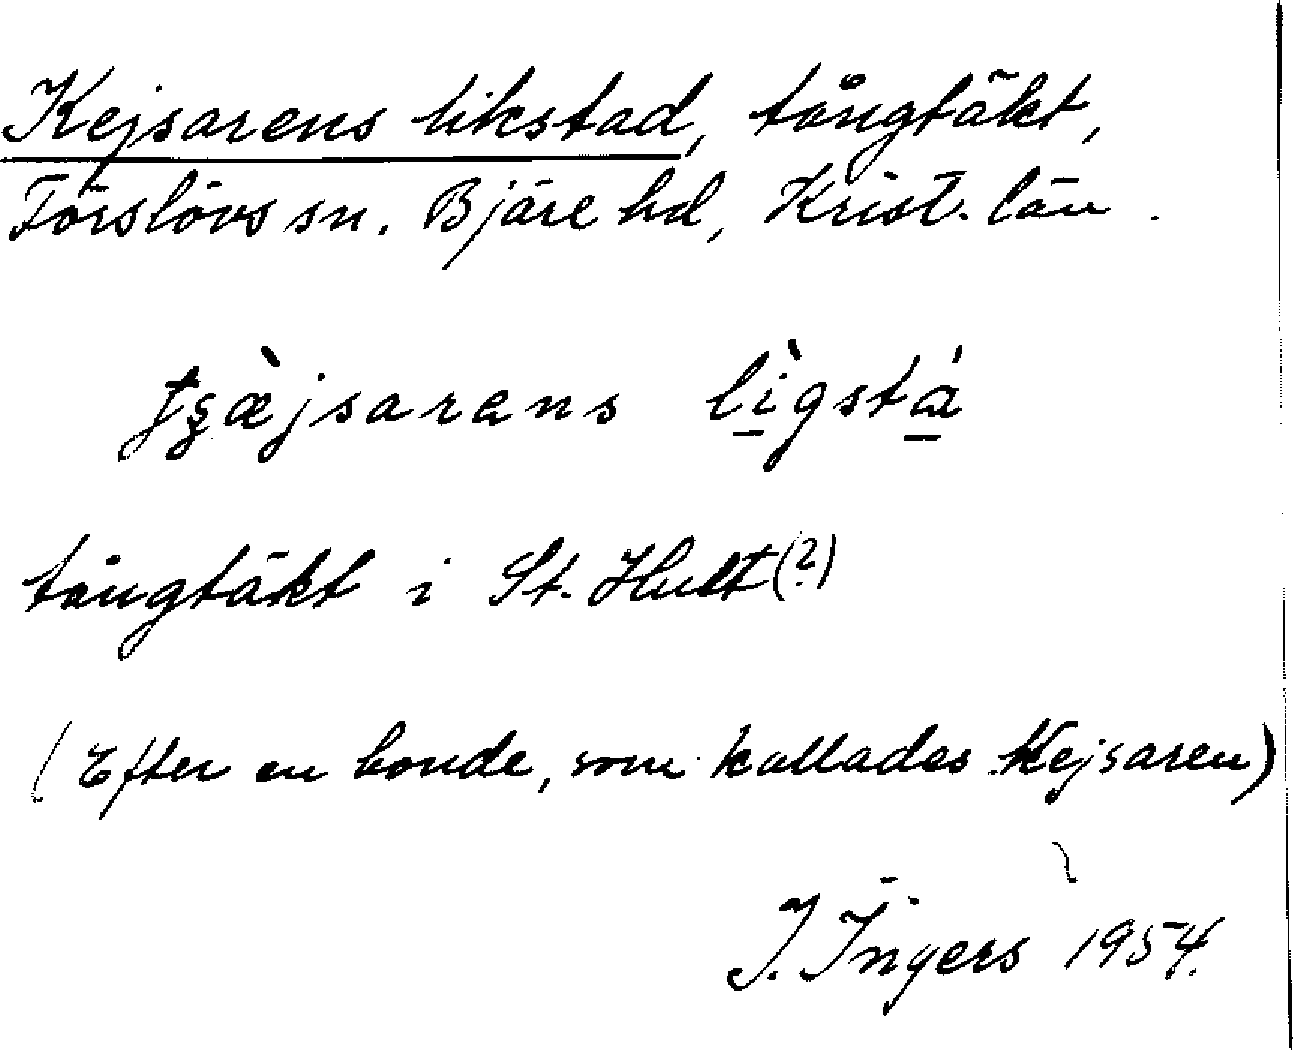 Kejsarens likstad, tångtäkt,
Förslövs sn. Bjäre hd, Krist. län.
tʂæ̀jsarəns lìgstá
tångtäkt i St. Hult (?)
(Efter en bonde, som kallades Kejsaren)
I. Ingers 1954.